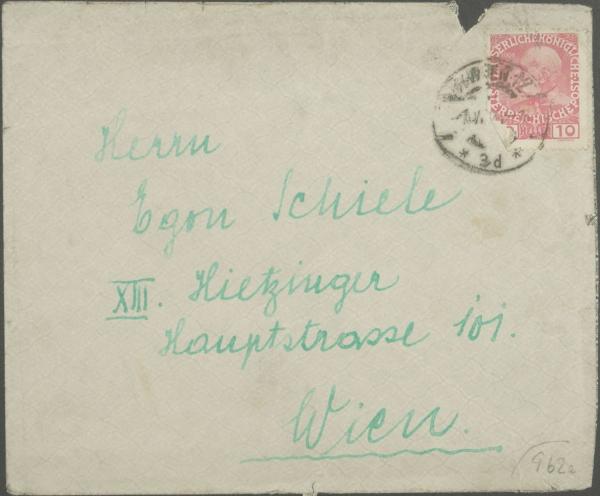 SERLICHEKÖNIGLICHE
ÖSTERREICHISCHE
10
Herrn
Egon Schiele
XIII. Hietzinger
Hauptstrasse 101.
Wien.
962a